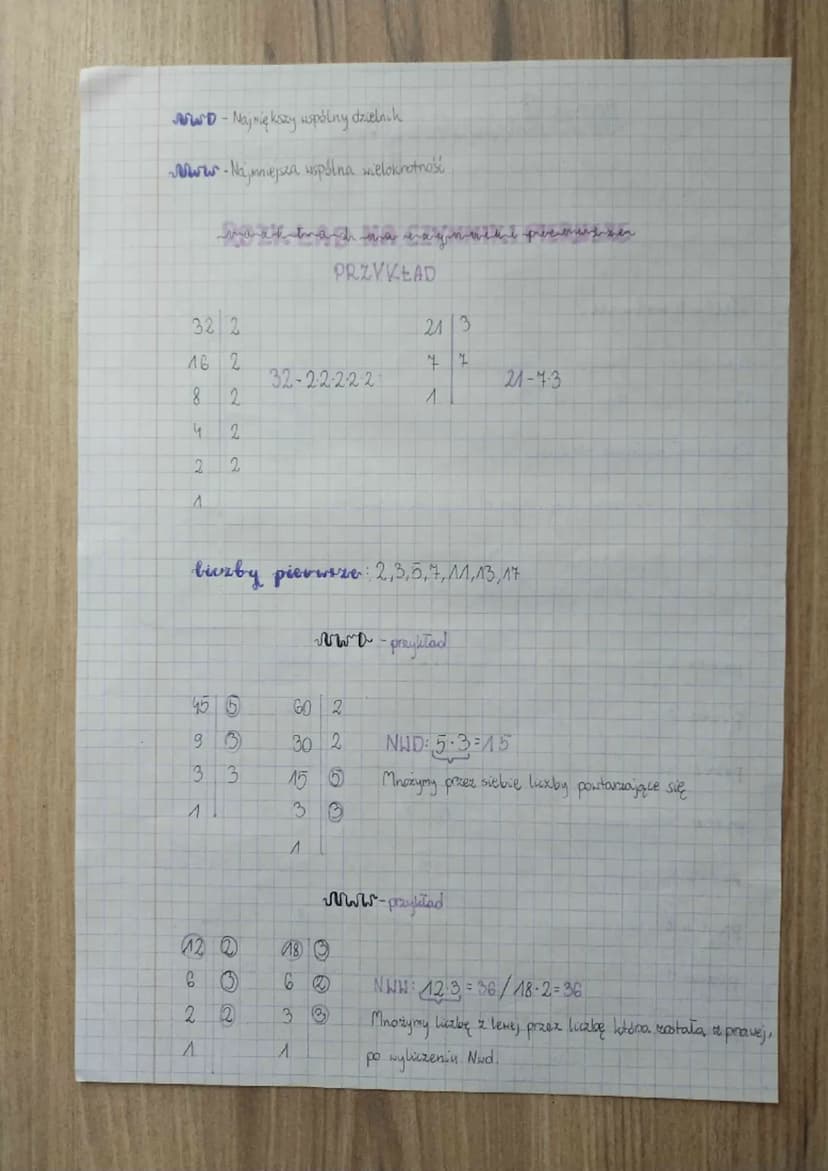 NWD - Największy wspólny dzielnik
NWW - Najmniejsza wspólna wielokrotność
rozkład na czynniki pierwsze
PRZYKŁAD
32 | 2
16 | 2
8 | 2
4 | 2
2 | 2
1
32-2·2·2·2·2
21 | 3
7 | 7
1
21-7·3
liczby pierwsze: 2,3,5,7,11,13,17
NWD - przykład
45 | 5
9 | 3
3 | 3
1
60 | 2
30 | 2
15 | 5
3 | 3
1
NWD: 5·3=15
Mnożymy przez siebie liczby powtarzające się
NWW - przykład
12 | 2
6 | 3
2 | 2
1
18 | 3
6 | 2
3 | 3
1
NWW: 12·3=36/18·2=36
Mnożymy liczbę z lewej przez liczbę która została z prawej,
po wyliczeniu Nwd.